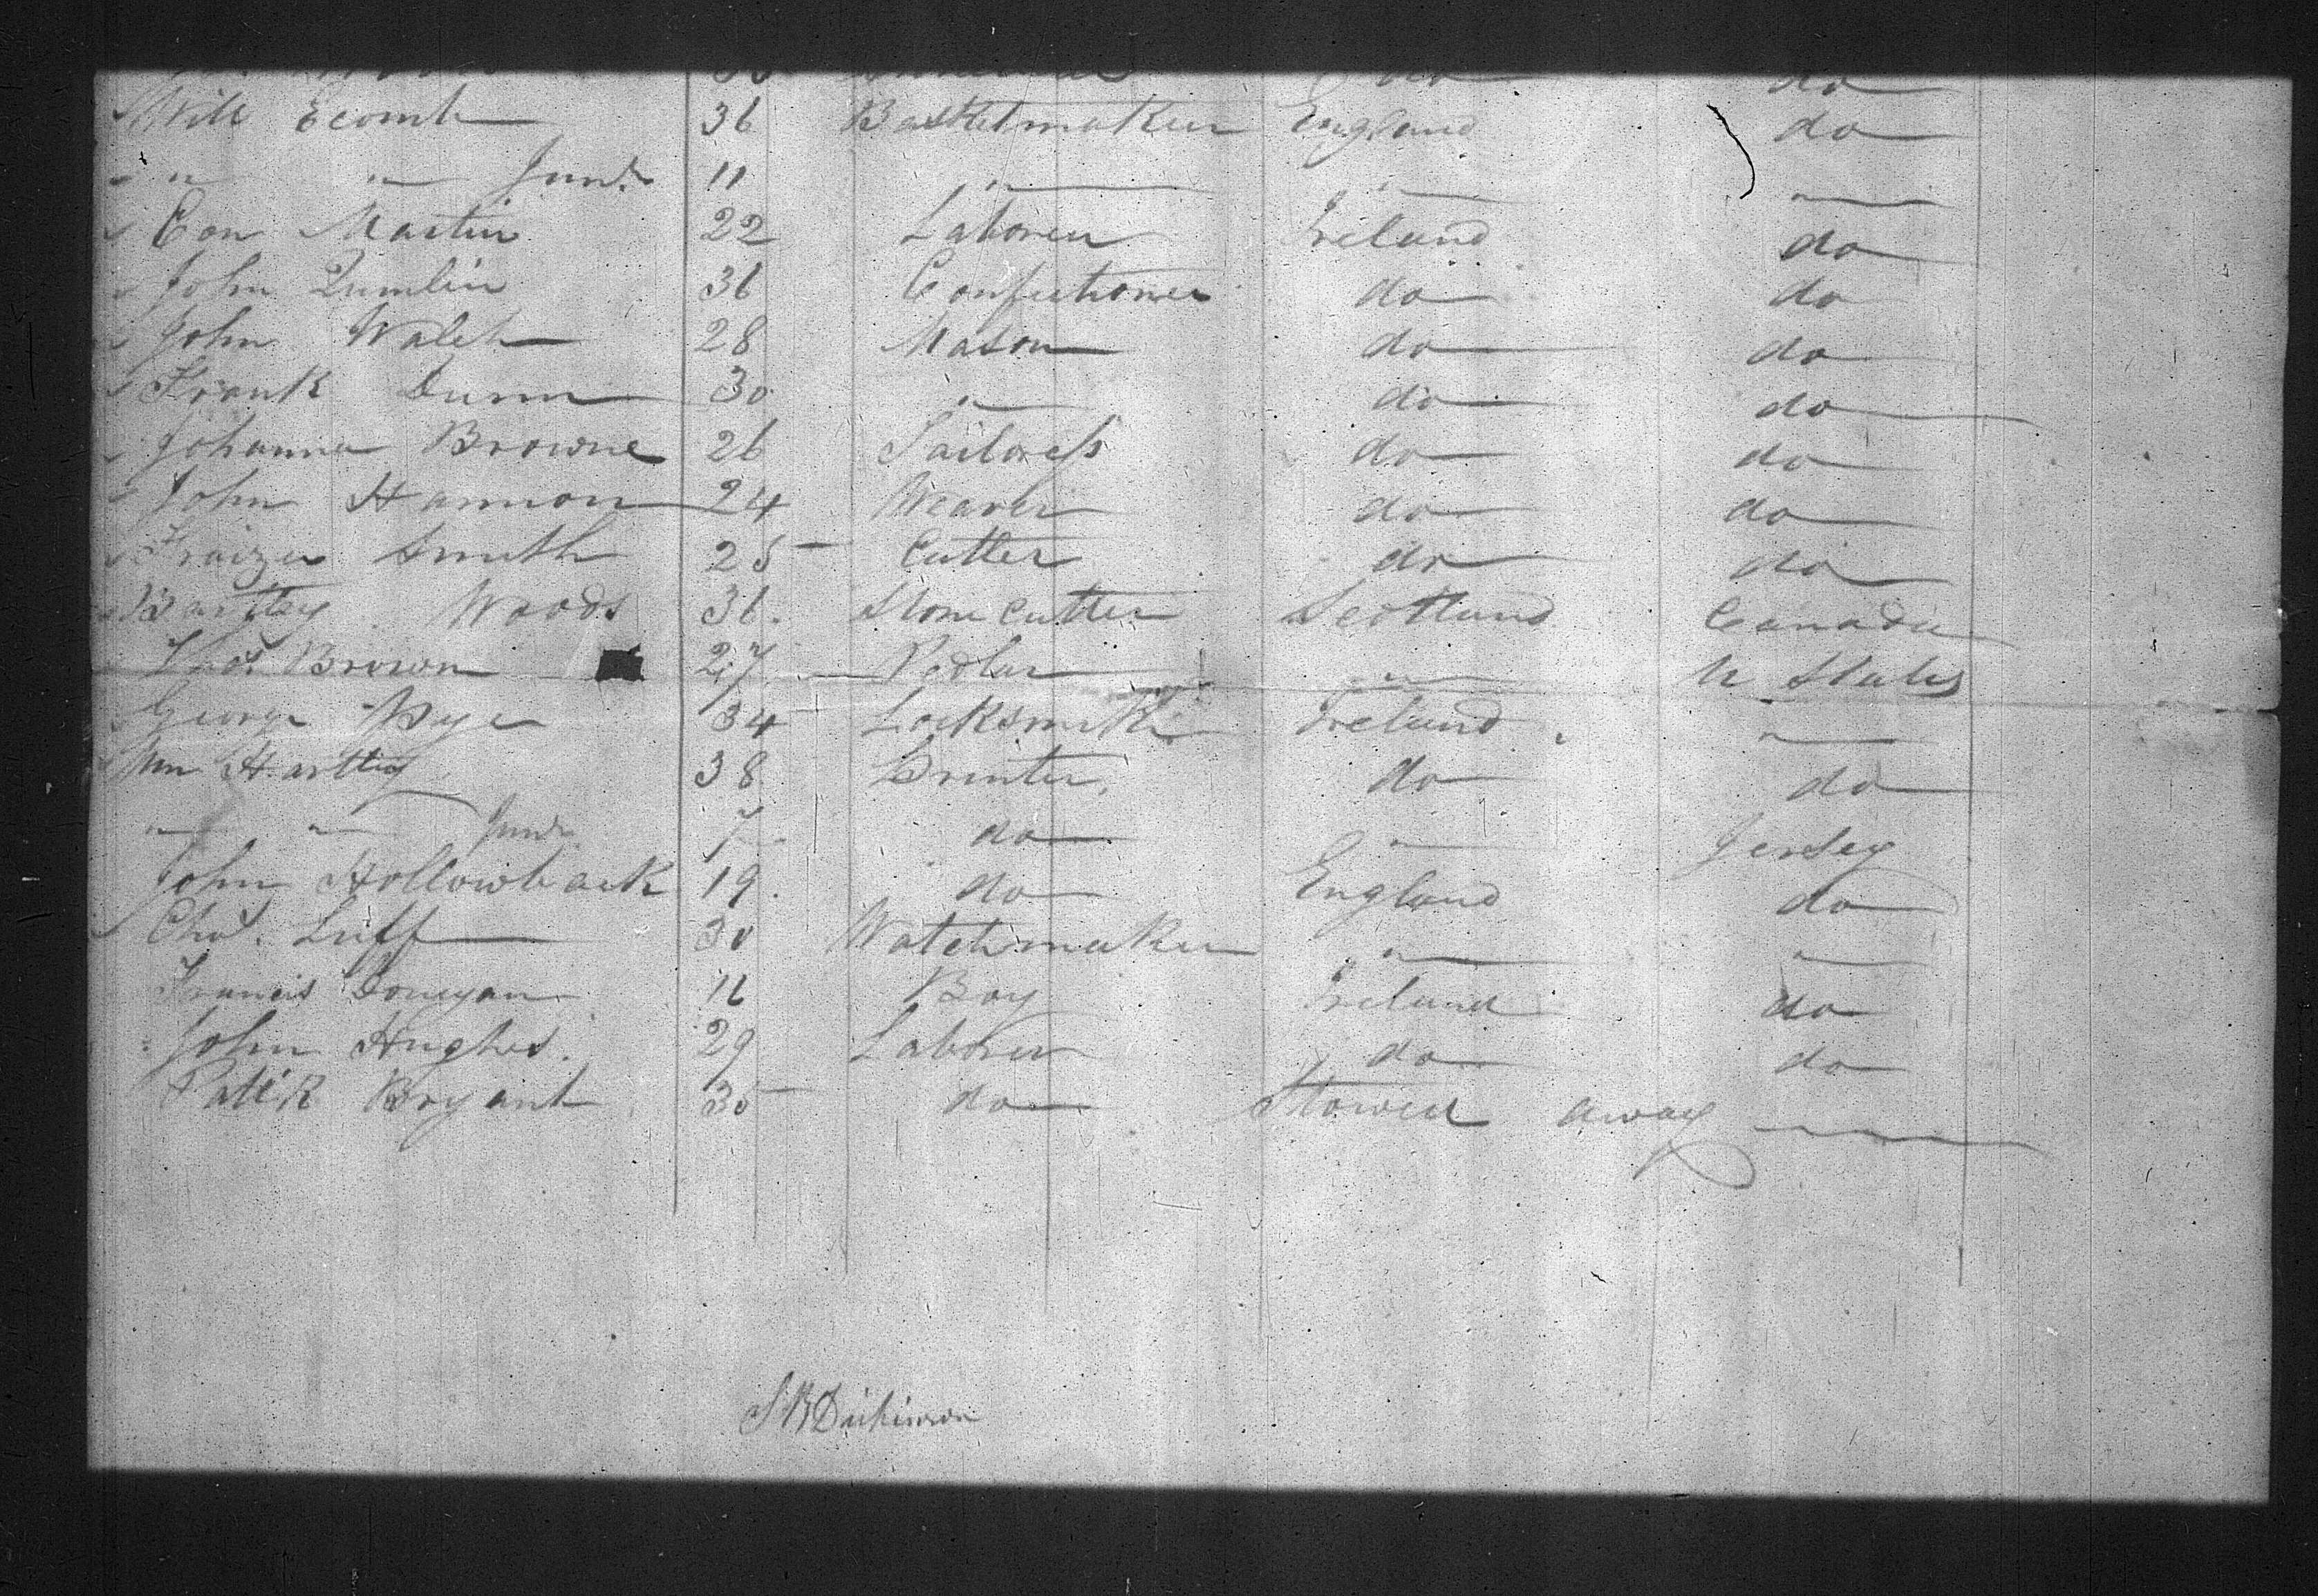 do do
Will Ecomb 36 Basketmaker England do
" " " Junr. 11 " " "
Con Martin 22 Laborer Ireland do
John Qumlin 36 Confectioner do do
John Walsh 28 Mason do do
Frank Dunn 30 " do do
Johanna Browne 26 Tailoress do do
John Hannon 24 Weaver do do
Fraizer Smith 25 Cutter do do
Bartley Woods 36. Stone Cutter Scotland Canada
Thos. Brown 27 Pedlar " U States
George Pye 34 Locksmith Ireland "
Wm Hartley 38 Printer do do
" " Junr. 7 do " Jersey
John Hollowback 19. do England do
Chas. Luff 30 Watchmaker " "
Francis Donegan 11 Boy Ireland do
John Hughes. 29 Laborer do do
Patt'k Bryant 35 do Stowed away
S B Dickinson